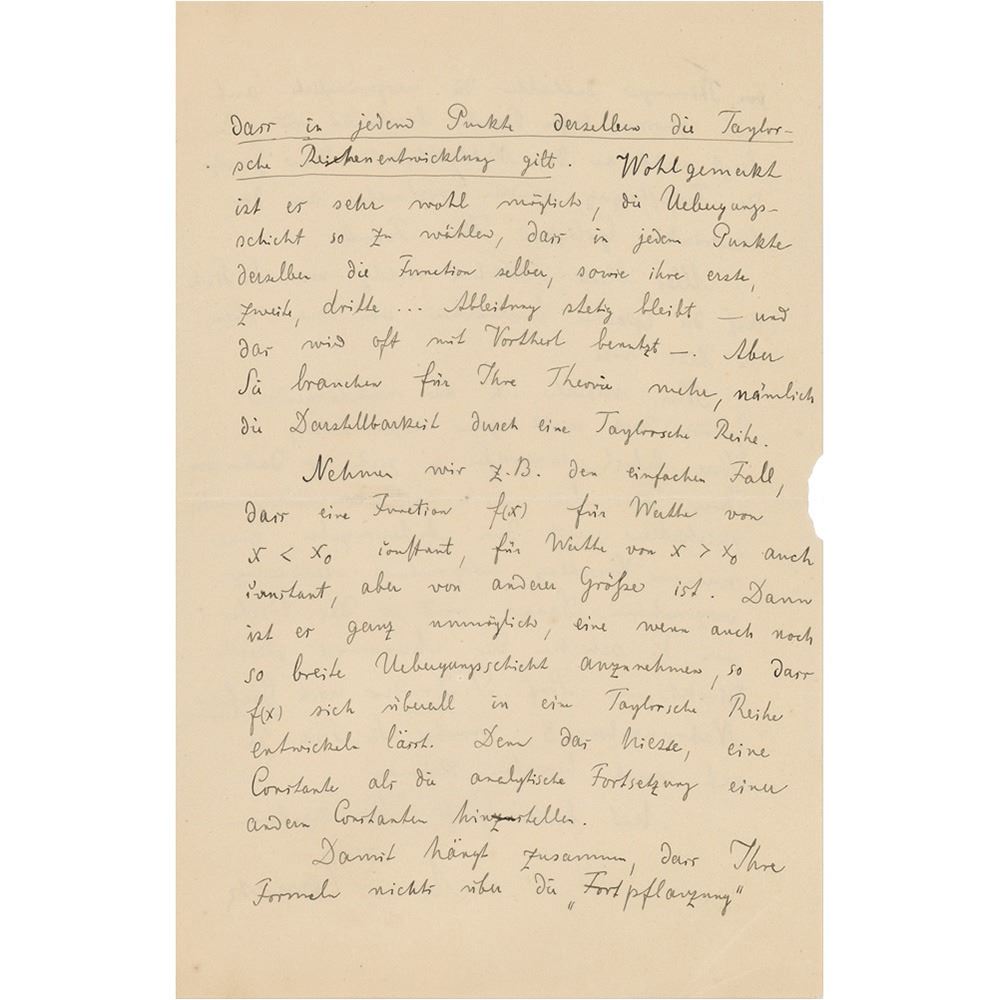 dass in jedem Punkte derselben die Taylor-
sche Reihenentwicklung gilt. Wohlgemerkt
ist es sehr wohl möglich, die Uebergangs-
schicht so zu wählen, dass in jedem Punkte
derselben die Function selber, sowie ihre erste,
zweite, dritte ... Ableitung stetig bleibt — und
das wird oft mit Vortheil benutzt —. Aber
Sie brauchen für Ihre Theorie mehr, nämlich
die Darstellbarkeit durch eine Taylorsche Reihe.
Nehmen wir z.B. den einfachen Fall,
dass eine Function f(x) für Werthe von
x < x₀ constant, für Werthe von x > x₀ auch
constant, aber von anderer Größe ist. Dann
ist es ganz unmöglich, eine wenn auch noch
so breite Uebergangsschicht anzunehmen, so dass
f(x) sich überall in eine Taylorsche Reihe
entwickeln lässt. Denn das hiesse, eine
Constante als die analytische Fortsetzung einer
andern Constanten hinstellen.
Damit hängt zusammen, dass Ihre
Formeln nichts über die „Fortpflanzung"